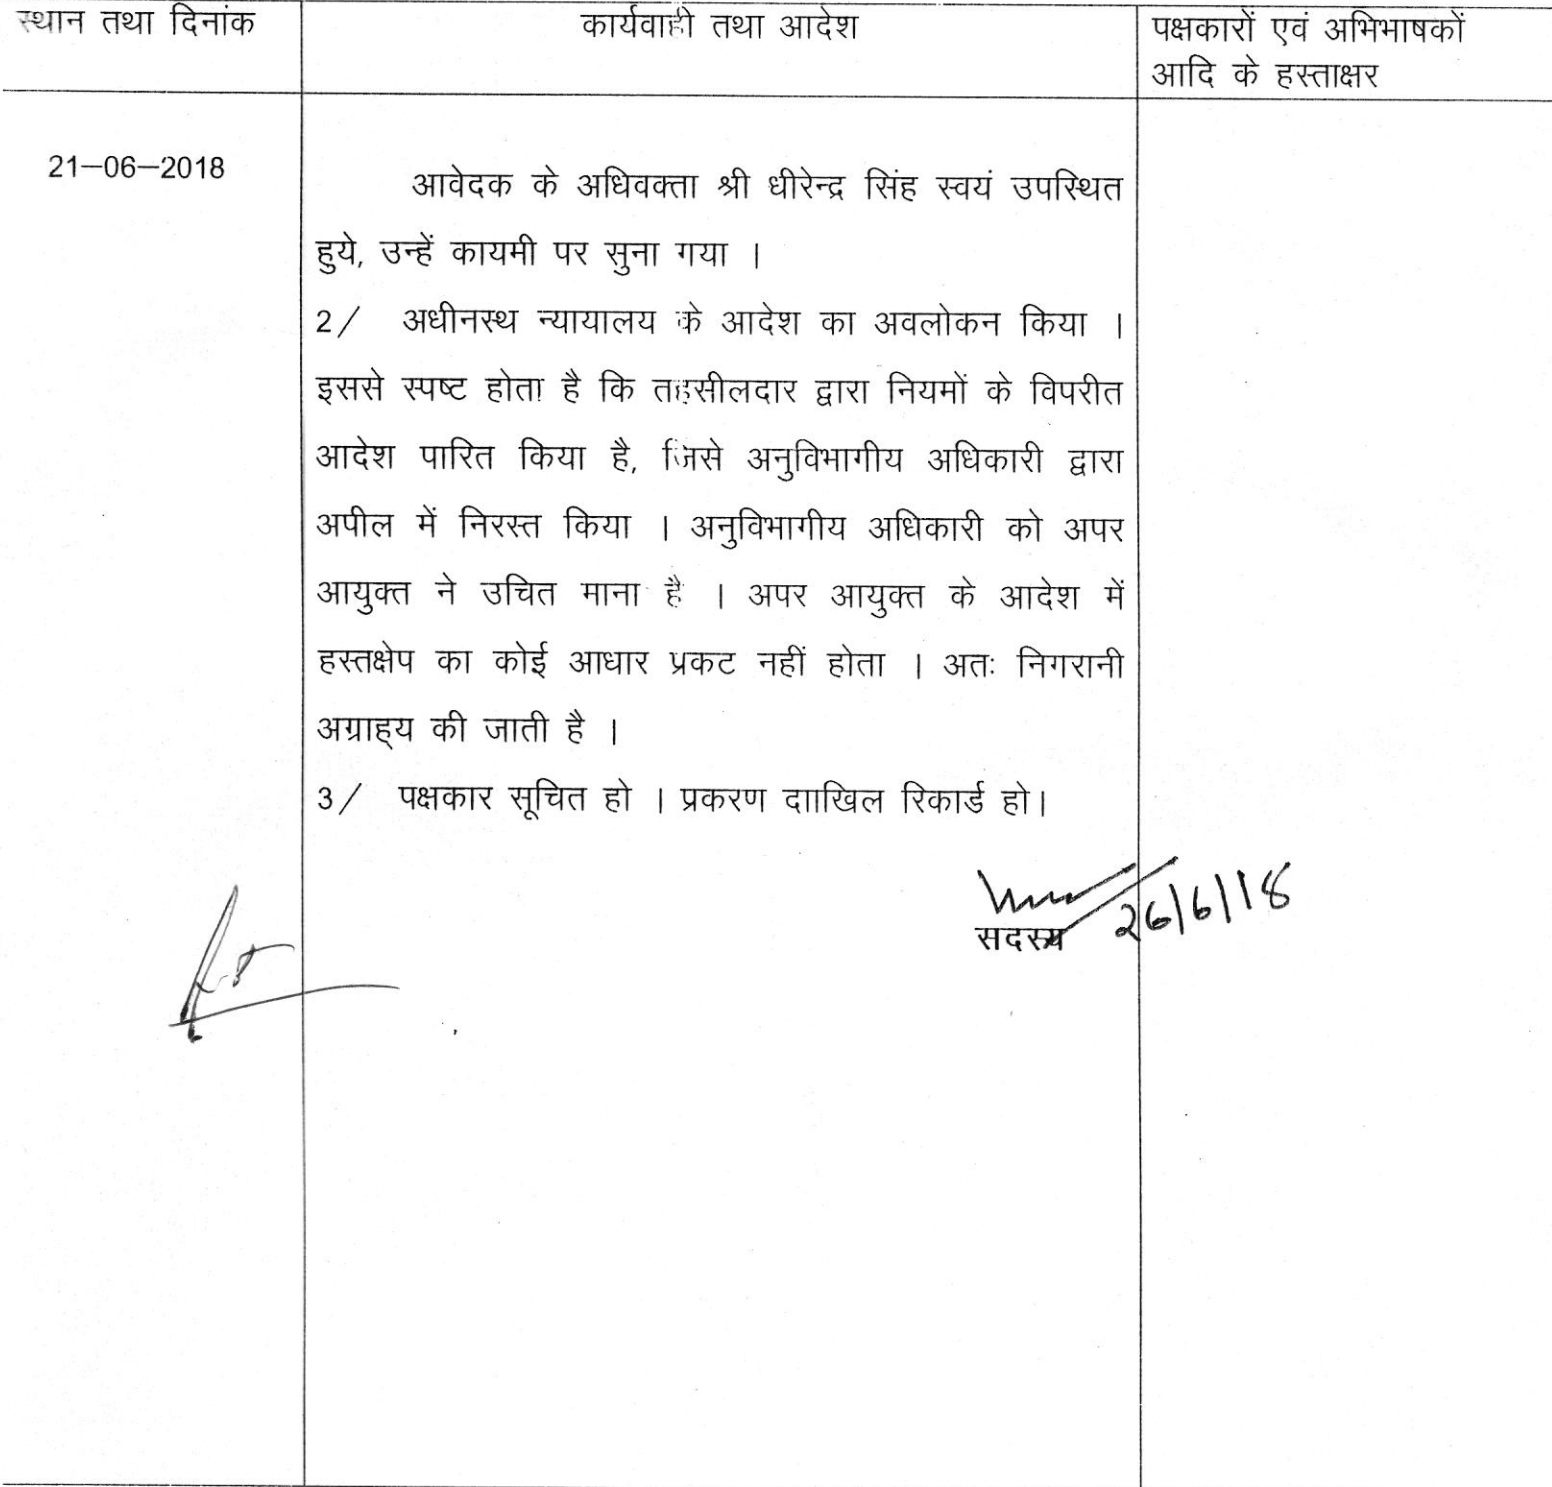 स्थान तथा दिनांक
कार्यवाही तथा आदेश
पक्षकारों एवं अभिभाषकों
आदि के हस्ताक्षर
21–06–2018
आवेदक के अधिवक्ता श्री धीरेन्द्र सिंह स्वयं उपस्थित
हुये, उन्हें कायमी पर सुना गया ।
2/ अधीनस्थ न्यायालय के आदेश का अवलोकन किया ।
इससे स्पष्ट होता है कि तहसीलदार द्वारा नियमों के विपरीत
आदेश पारित किया है, जिसे अनुविभागीय अधिकारी द्वारा
अपील में निरस्त किया । अनुविभागीय अधिकारी को अपर
आयुक्त ने उचित माना है । अपर आयुक्त के आदेश में
हस्तक्षेप का कोई आधार प्रकट नहीं होता । अतः निगरानी
अग्राह्य की जाती है ।
3/ पक्षकार सूचित हो । प्रकरण दााखिल रिकार्ड हो।
26/6/18
सदस्य